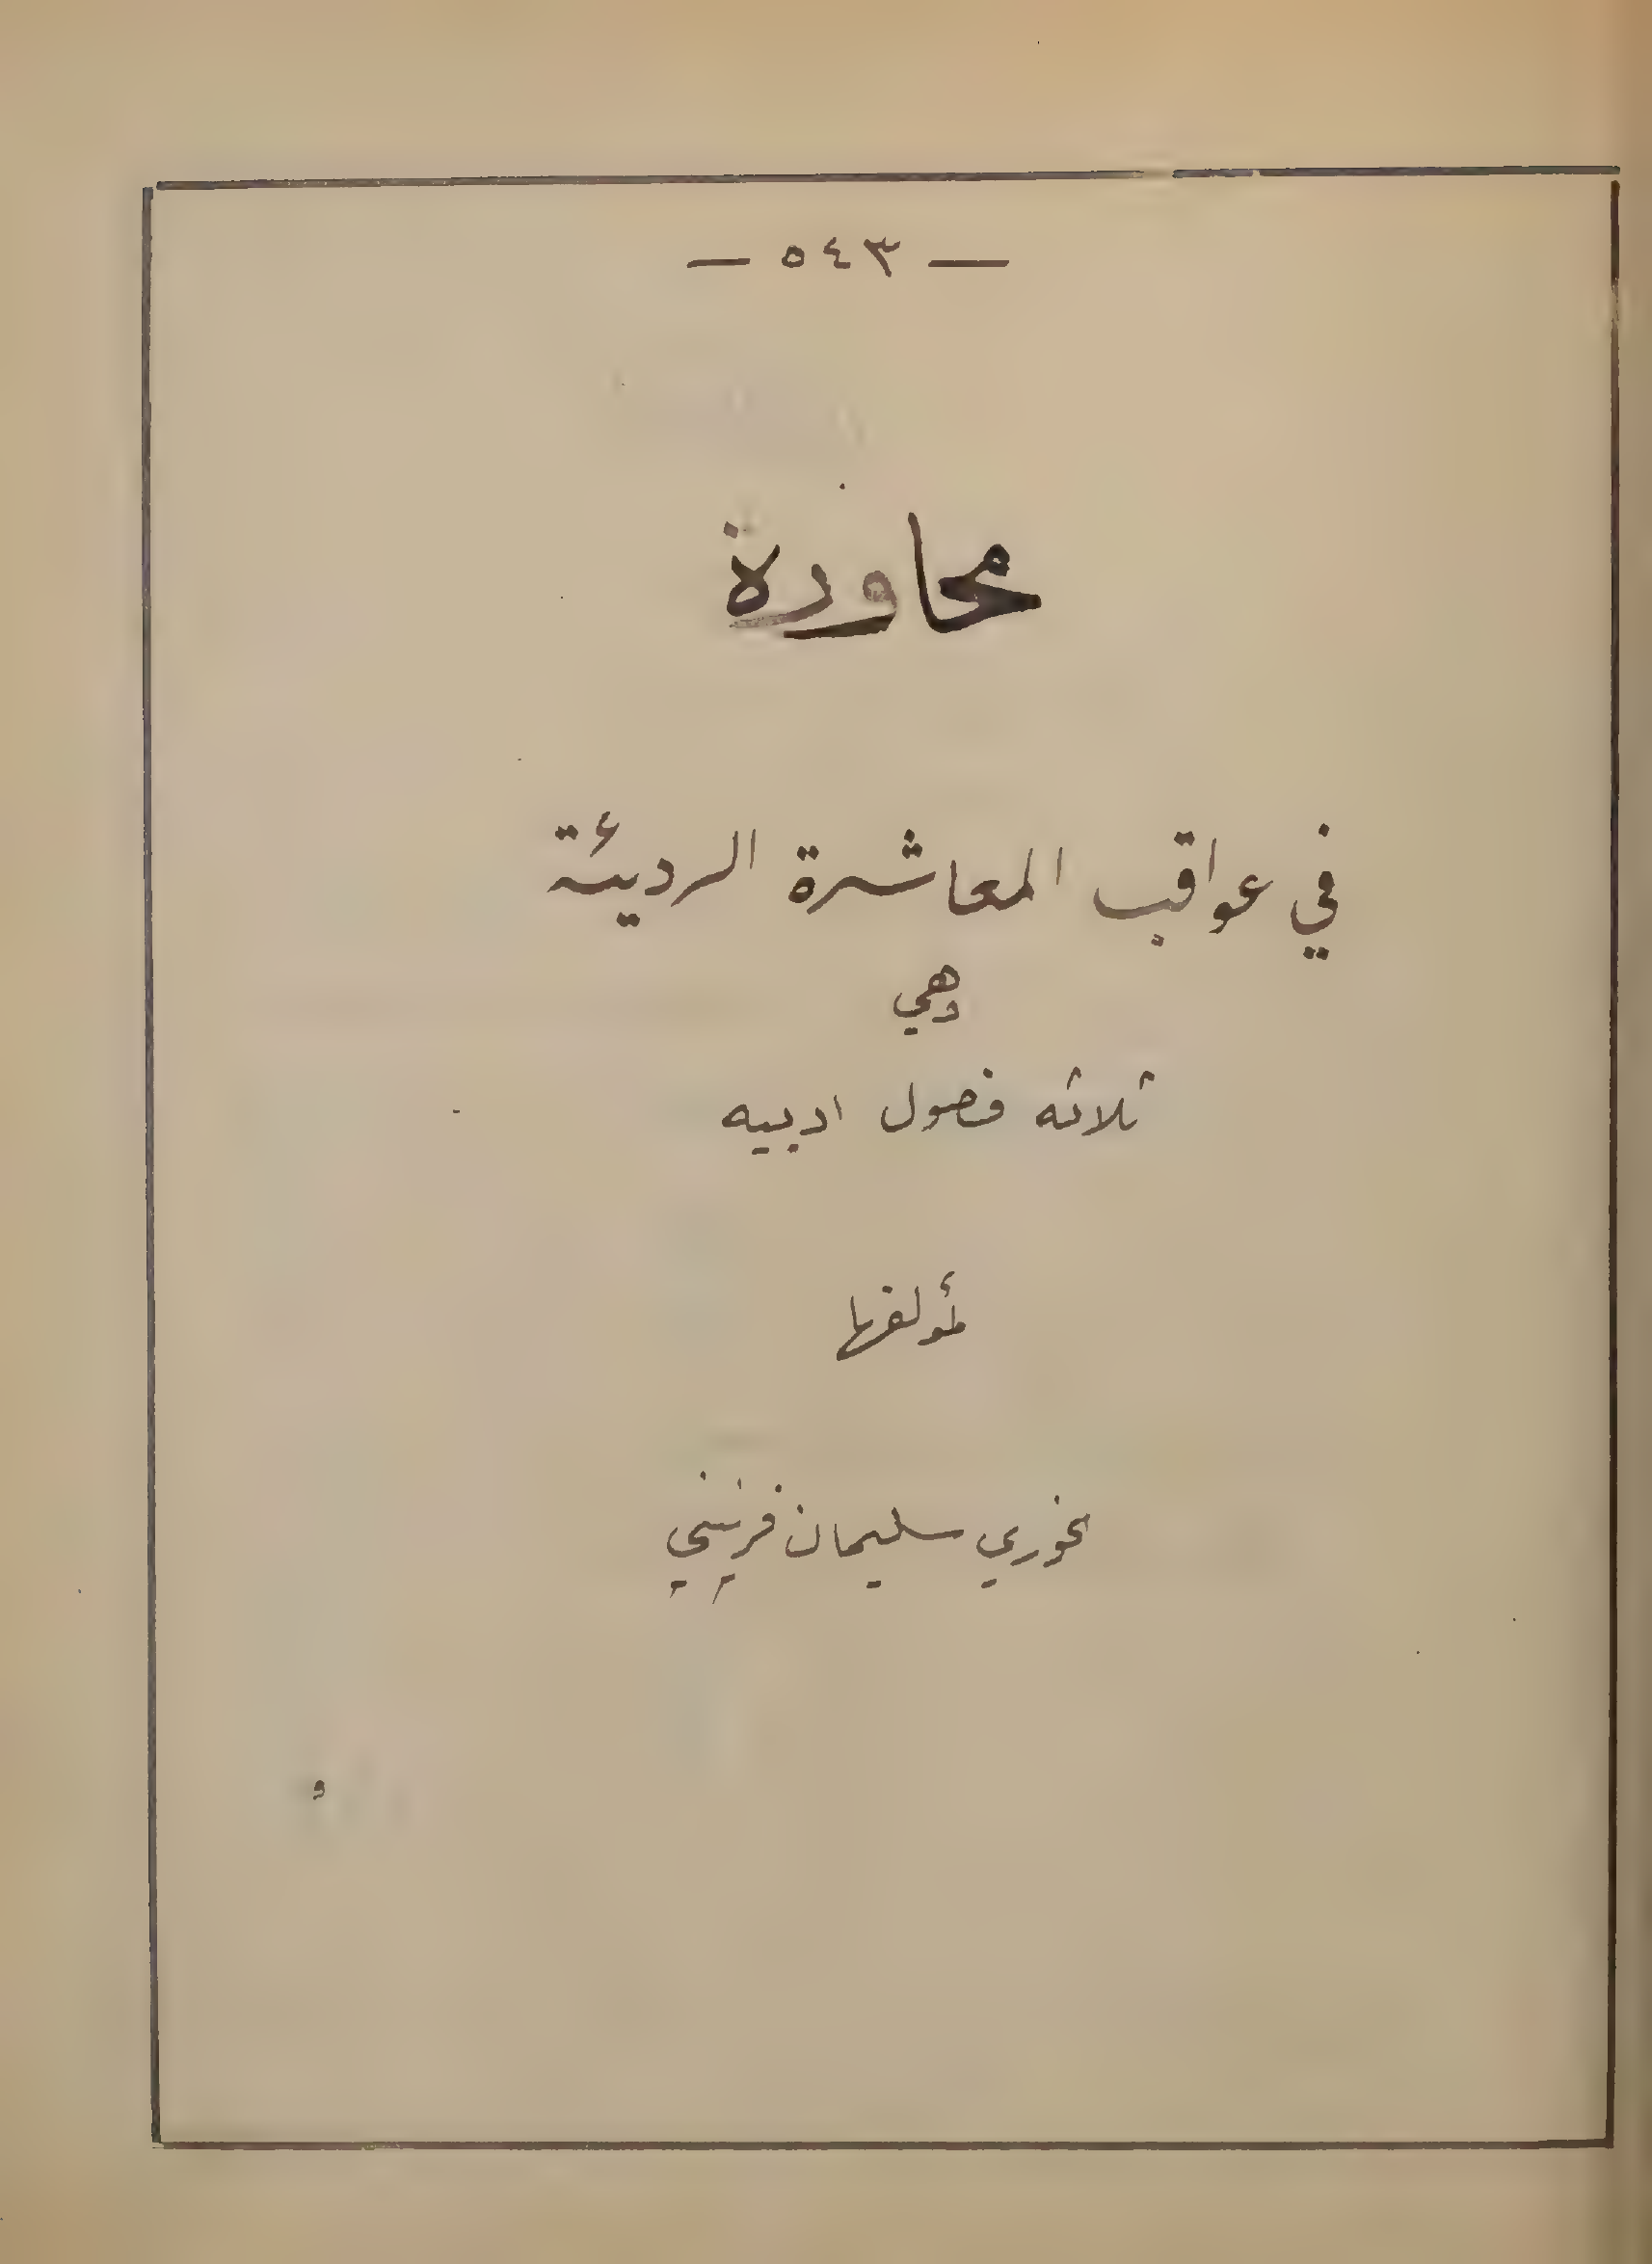 — ٥٤٣ —
محاورة
في عواقب المعاشرة الرديئة
وهي
ثلاثه فصول ادبيه
لمؤلفها
الخوري سليمان